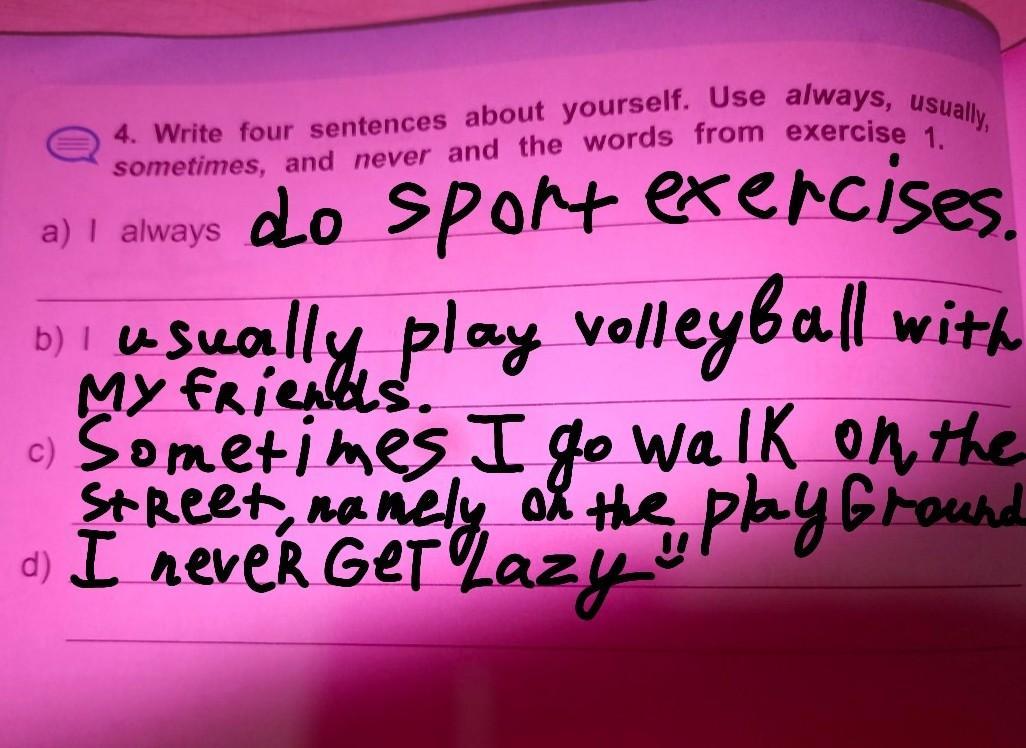 4. Write four sentences about yourself. Use always, usually,
sometimes, and never and the words from exercise 1.
a) I always do sport exercises.
b) I usually play volleyball with
My fRiends.
c) Sometimes I go walk on the
stReet, namely on the playGround
d) I neveR GeT Lazy